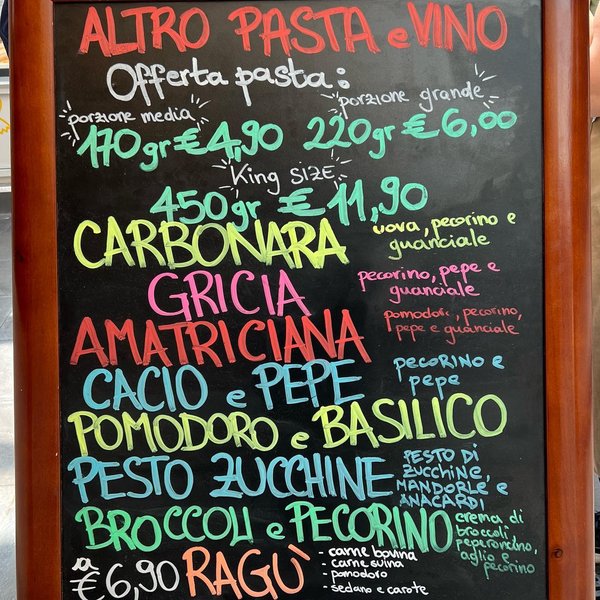 ALTRO PASTA e VINO
Offerta pasta:
porzione media
porzione grande
170gr €4,90 220gr €6,00
King SIZE
450gr €11,90
CARBONARA
uova, pecorino e
guanciale
GRICIA
pecorino, pepe e
guanciale
AMATRICIANA
pomodori, pecorino,
pepe e guanciale
CACIO e PEPE
pecorino e
pepe
POMODORO e BASILICO
PESTO ZUCCHINE
PESTO DI
ZUCCHINE,
MANDORLE e
ANACARDI
BROCCOLI e PECORINO
crema di
broccoli,
peperoncino,
aglio e
pecorino
a
€6,90 RAGÙ
- carne bovina
- carne suina
- pomodoro
- sedano e carote